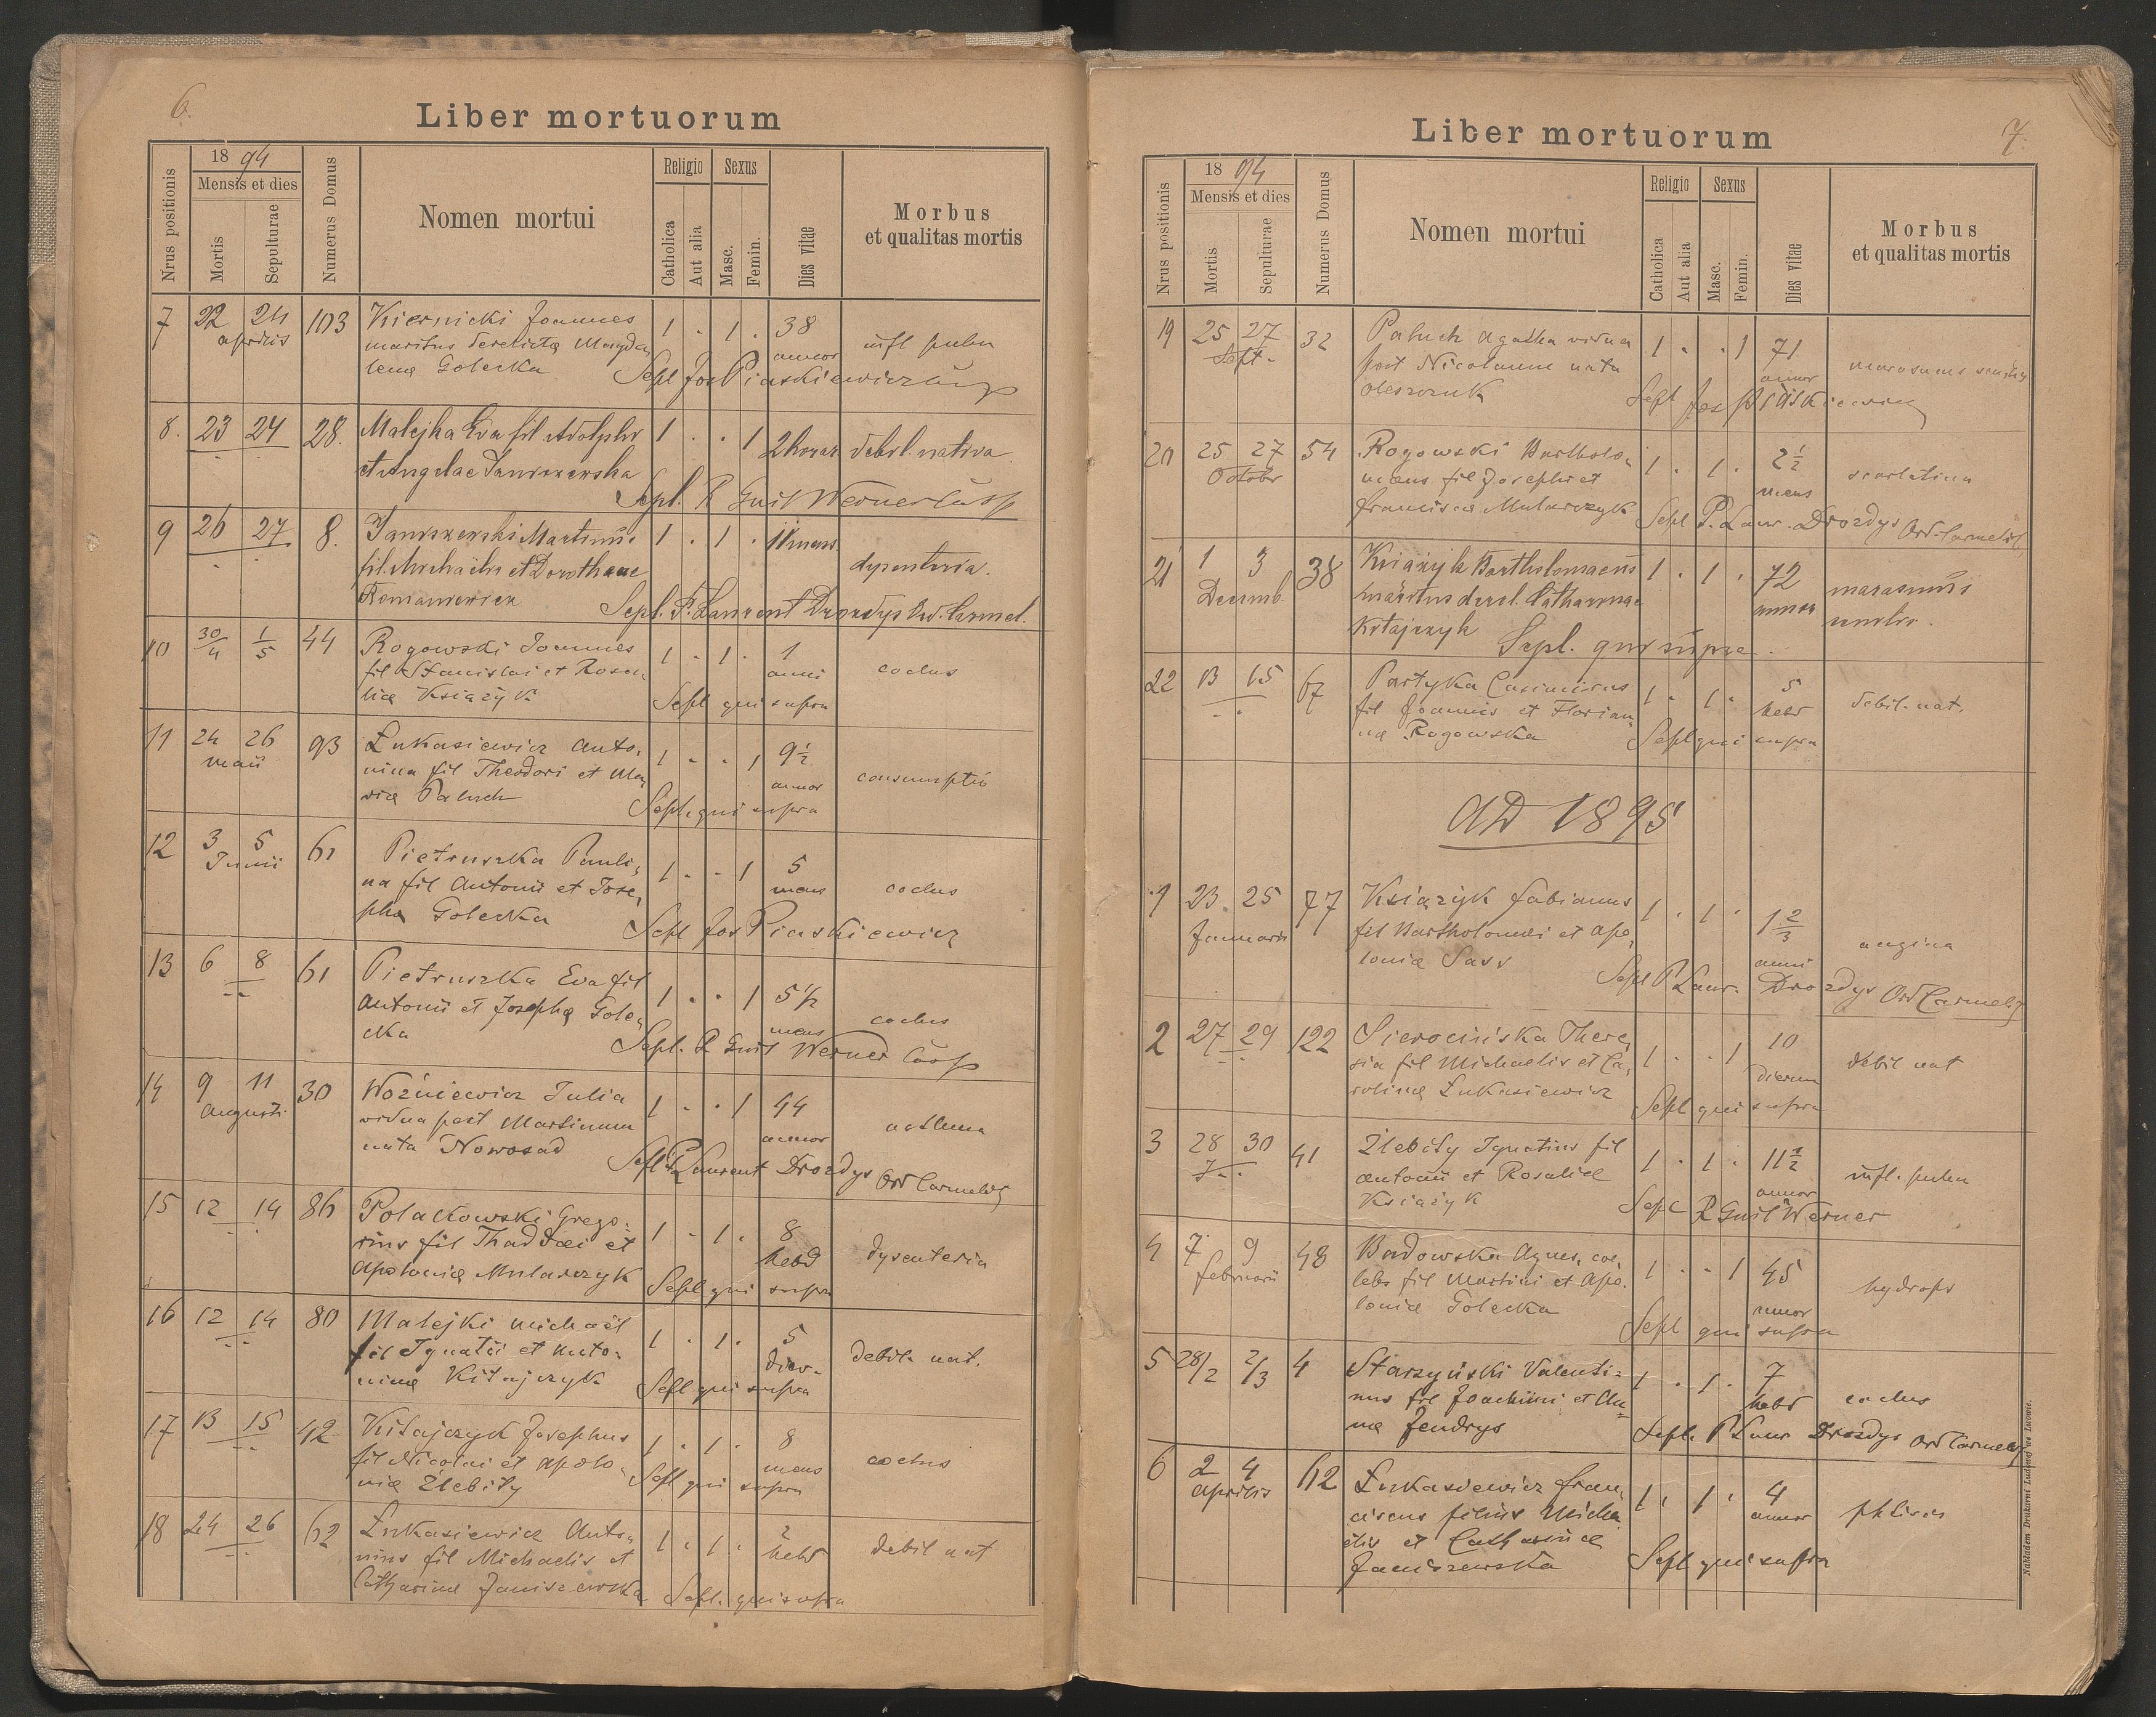 6.
Liber mortuorum
Nrus positionis
1894
Mensis et dies
Mortis
Sepulturae
Numerus Domus
Nomen mortui
Religio
Catholica
Aut alia
Sexus
Masc.
Femin.
Dies vitae
Morbus
et qualitas mortis
7 22 24 103 Kiernicki Joannes 1 . 1 . 38
aprilis maritus derelicta Magda annor infl pulm
lena Golecka Sepl Jos Piaskiewicz
8. 23 24 28. Malejka Eva fil Adolphi 1 . . 1 2 horar debil. nativa
et Angelae Janiszewska
Sepl. R Guil Werner
9 26 27 8. Janiszewski Martinus 1 . 1 . 11 mens.
fil. Michaelis et Dorotheae dysenteria.
Romaniewicz Sepl. P. Laurent Drozdys Ord. Carmel.
10 30/4 1/5 44 Rogowski Joannes 1 . 1 . 1
fil Stanislai et Rosa anni coclus
liae Książyk Sepl qui supra
11 24 26 93 Łukasiewicz Anto, 1 . . 1 9½
maii nina fil Theodori et Ma, annor consumptio
ria Paluch Sepl. qui supra
12 3 5 61 Pietruszka Pauli, 1 . . 1 5
Junii na fil Antonii et Jose, mens coclus
pha Golecka Sepl Jos Piaskiewicz
13 6 8 61 Pietruszka Eva fil 1 . . 1 5½
Antonii et Josepha Gole, mens coclus
cka Sepl. R Guil Werner
14 9 11 30 Woźniewicz Julia 1 . . 1 44
Augusti vidua post Martinum annor asthma
nata Nowosad Sepl P Laurent Drozdys Ord Carmelit
15 12 14 86 Polakowski Grego, 1 . 1 . 8
rius fil Thaddaei et hebd dysenteria
Apolonia Mularczyk Sepl qui supra
16 12 14 80 Malejki Michaël 1 . 1 . 5
fil Ignatii et Anto, dier. debil. nat.
nina Kitajczyk Sepl qui supra
17 13 15 42 Kitajczyk Josephus 1 . 1 . 8
fil Nicolai et Apolo, mens coclus
nia Źlebity Sepl qui supra
18 24 26 62 Łukasiewicz Anto, 1 . 1 . 2
nius fil Michaelis et hebd debil nat
Catharina Janiszewska Sepl. qui supra
7.
Liber mortuorum
Nrus positionis
1894
Mensis et dies
Mortis
Sepulturae
Numerus Domus
Nomen mortui
Religio
Catholica
Aut alia
Sexus
Masc.
Femin.
Dies vitae
Morbus
et qualitas mortis
19 25 27 32 Paluch Agatha vidua 1 . . 1 71
Sept. post Nicolaum nata annor marasmus senilis
Oleszczuk Sepl Jos Piaskiewicz
20 25 27 54 Rogowski Bartholo, 1 . 1 . 2½
Octobr maeus fil Josephi et mens scarlatina
Francisca Mularczyk Sepl P. Laur. Drozdys Ord. Carmelit.
21 1 3 38 Książyk Bartholomaeus 1 . 1 . 72 marasmus
Decemb. maritus derel. Catharinae annor
Kitajczyk Sepl. qui supra.
22 13 15 67 Partyka Casimirus 1 . 1 . 5
fil Joannis et Florian, hebd debil. nat.
na Rogowska Sepl qui supra
AD 1895
1 23. 25 77 Książyk Fabianus 1 . 1 . 1⅔
Januarii fil Bartholomaei et Apo, anni angina
lonia Sass Sepl P Laur. Drozdys Ord Carmelit
2 27 29 122 Sierocińska There, 1 . . 1 10
sia fil Michaelis et Ca, dierum debil nat
rolina Łukasiewicz Sepl qui supra
3 28 30 41 Źlebity Ignatius fil 1 . 1 . 11½
Antonii et Rosaliae annor infl. pulm
Książyk Sepl R Guil Werner
4 7 9 48 Budowska Agnes, coe, 1 . . 1 45
Februarii lebs fil Martini et Apo, annor hydrops
lonia Golecka Sepl qui supra
5 28/2 2/3 4 Starzyński Valenti= 1 . 1 . 7
nus fil Joachimi et An= hebd coclus
na Jendrys Sepl. P Laur Drozdys Ord Carmelit
6 2 4 62 Łukasiewicz Fran, 1 . 1 . 4
Aprilis ciscus filius Micha annor phtisis
elis et Catharina
Janiszewska Sepl qui supra
Nakładem Drukarni Ludowej we Lwowie.